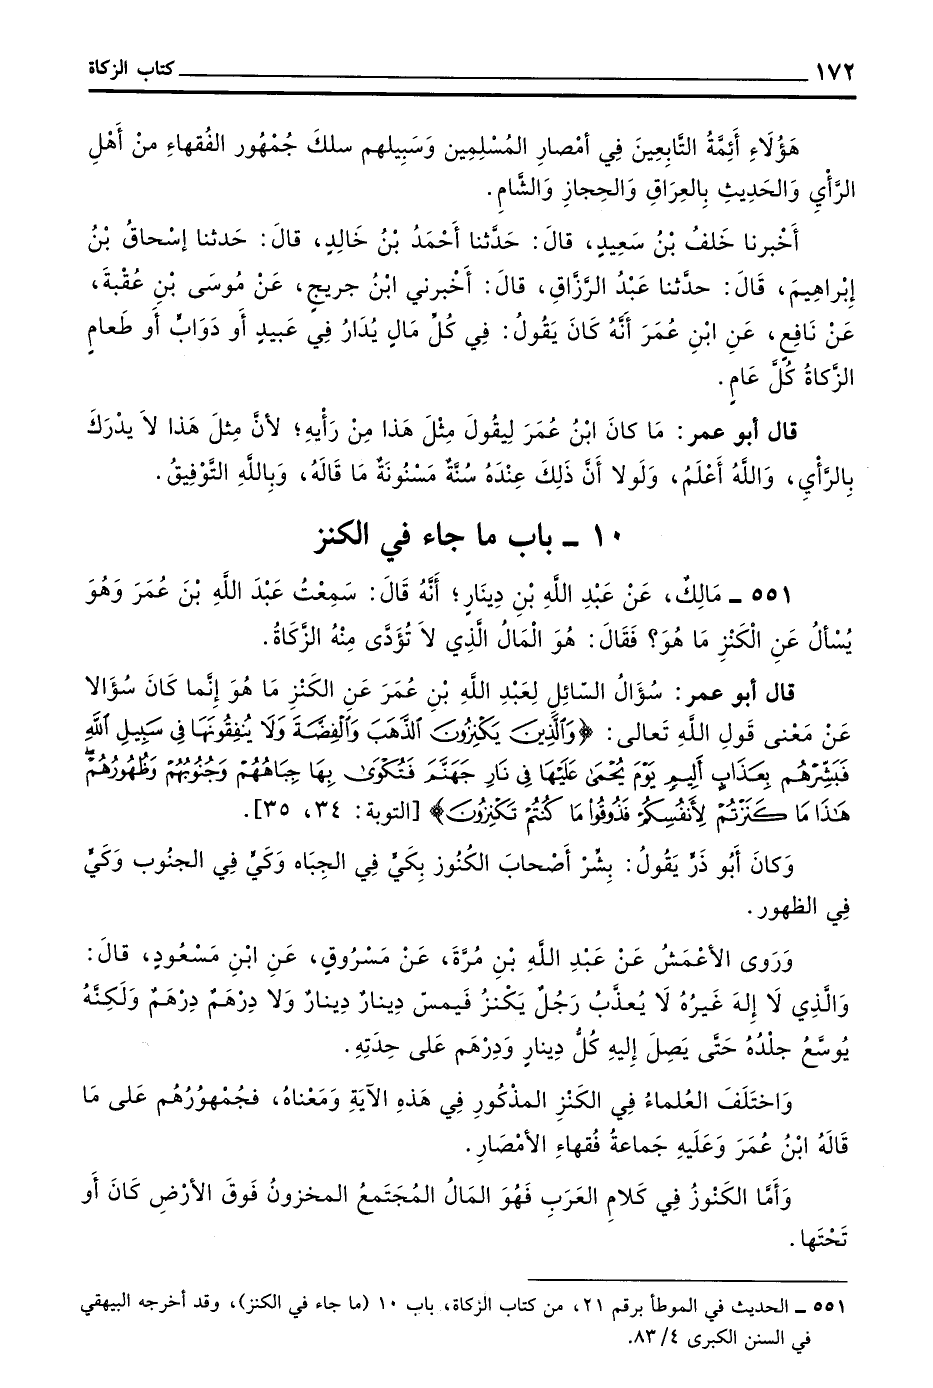 ١٧٢ كتاب الزكاة
هَؤُلَاءِ أَئِمَّةُ التَّابِعِينَ فِي أمْصارِ المُسْلِمِين وَسَبِيلهم سلكَ جُمْهُور الفُقهاءِ منْ أَهْلِ
الرَّأْي وَالحَدِيثِ بِالعِرَاقِ وَالحِجازِ وَالشَّام.
أَخْبرنا خَلفُ بْنُ سَعِيد، قالَ: حَدَّثنا أحْمَدُ بْنُ خَالِدٍ، قالَ: حَدثنا إسْحاقُ بْنُ
إبْراهِيمَ، قَالَ: حدَّثنا عَبْدُ الرَّزاقِ، قالَ: أَخْبرني ابْنُ جريجٍ، عَنْ مُوسَى بْنِ عُقْبةَ،
عَنْ نَافِعٍ، عَنِ ابْنِ عُمَرَ أَنَّهُ كَانَ يَقُولُ: فِي كُلِّ مَالٍ يُدَارُ فِي عَبيدٍ أو دَوَابٍّ أو طَعامٍ
الزَّكاةُ كُلَّ عَامٍ.
قال أبو عمر: مَا كانَ ابْنُ عُمَرَ لِيقُولَ مِثْلَ هَذا مِنْ رَأْيهِ؛ لأنَّ مِثلَ هَذا لاَ يدْرَكَ
بِالرَّأْيِ، وَاللَّهُ أعْلَمُ، وَلَولا أنَّ ذَلِكَ عِنْدَهُ سُنَّةٌ مَسْنُونَةٌ مَا قَالَهُ، وَبِاللَّهِ التَّوْفِيقُ.
١٠ ـ باب ما جاء في الكنز
٥٥١ ـ مَالِكٌ، عَنْ عَبْدِ اللَّهِ بْنِ دِينَارٍ؛ أَنَّهُ قَالَ: سَمِعْتُ عَبْدَ اللَّهِ بْنَ عُمَرَ وَهُوَ
يُسْألُ عَنِ الْكَنْزِ مَا هُوَ؟ فَقَالَ: هُوَ الْمَالُ الَّذِي لاَ تُؤَدَّى مِنْهُ الزَّكَاةُ.
قال أبو عمر: سُؤَالُ السَّائلِ لِعَبْدِ اللَّهِ بْنِ عُمَرَ عَنِ الكَنْزِ مَا هُوَ إنَّما كَانَ سُؤَالا
عَنْ مَعْنى قَولِ اللَّهِ تَعالى: ﴿وَٱلَّذِينَ يَكْنِزُونَ ٱلذَّهَبَ وَٱلْفِضَّةَ وَلَا يُنفِقُونَهَا فِى سَبِيلِ ٱللَّهِ
فَبَشِّرْهُم بِعَذَابٍ أَلِيمٍ يَوْمَ يُحْمَىٰ عَلَيْهَا فِى نَارِ جَهَنَّمَ فَتُكْوَىٰ بِهَا جِبَاهُهُمْ وَجُنُوبُهُمْ وَظُهُورُهُمْ
هَٰذَا مَا كَنَزْتُمْ لِأَنفُسِكُمْ فَذُوقُوا۟ مَا كُنتُمْ تَكْنِزُونَ﴾ [التوبة: ٣٤، ٣٥].
وَكانَ أَبُو ذَرٍّ يَقُولُ: بشِّرْ أَصْحابَ الكُنُوز بِكَيٍّ فِي الجِبَاه وَكَيٍّ فِي الجنُوب وَكَيٍّ
فِي الظهور.
وَرَوى الأعْمَشُ عَنْ عَبْدِ اللَّهِ بْنِ مُرَّةَ، عَنْ مَسْرُوقٍ، عَنِ ابْنِ مَسْعُودٍ، قالَ:
وَالَّذِي لَا إلهَ غَيرُهُ لَا يُعذَّبُ رَجُلٌ يَكْنزُ فَيمسّ دِينارٌ دِينارٌ وَلا دِرْهَمٌ دِرْهَمٌ وَلَكِنَّهُ
يُوسَّعُ جلْدُهُ حَتَّى يَصِلَ إليهِ كُلُّ دِينارٍ وَدِرْهَم عَلى حِدَتِهِ.
وَاختَلَفَ العُلماءُ فِي الكَنْزِ المذْكُورِ فِي هَذهِ الآيَةِ وَمَعْناهُ، فجُمْهُورُهُم عَلى مَا
قَالَهُ ابْنُ عُمَرَ وَعَلَيهِ جَماعةُ فُقهاءِ الأمْصَارِ.
وَأَمَّا الكَنْوزُ فِي كَلامِ العَرَبِ فَهُوَ المَالُ المُجَتَمعُ المخزونُ فَوقَ الأرْضِ كَانَ أو
تَحْتَها.
٥٥١ ـ الحديث في الموطأ برقم ٢١، من كتاب الزكاة، باب ١٠ (ما جاء في الكنز)، وقد أخرجه البيهقي
في السنن الكبرى ٤/ ٨٣.